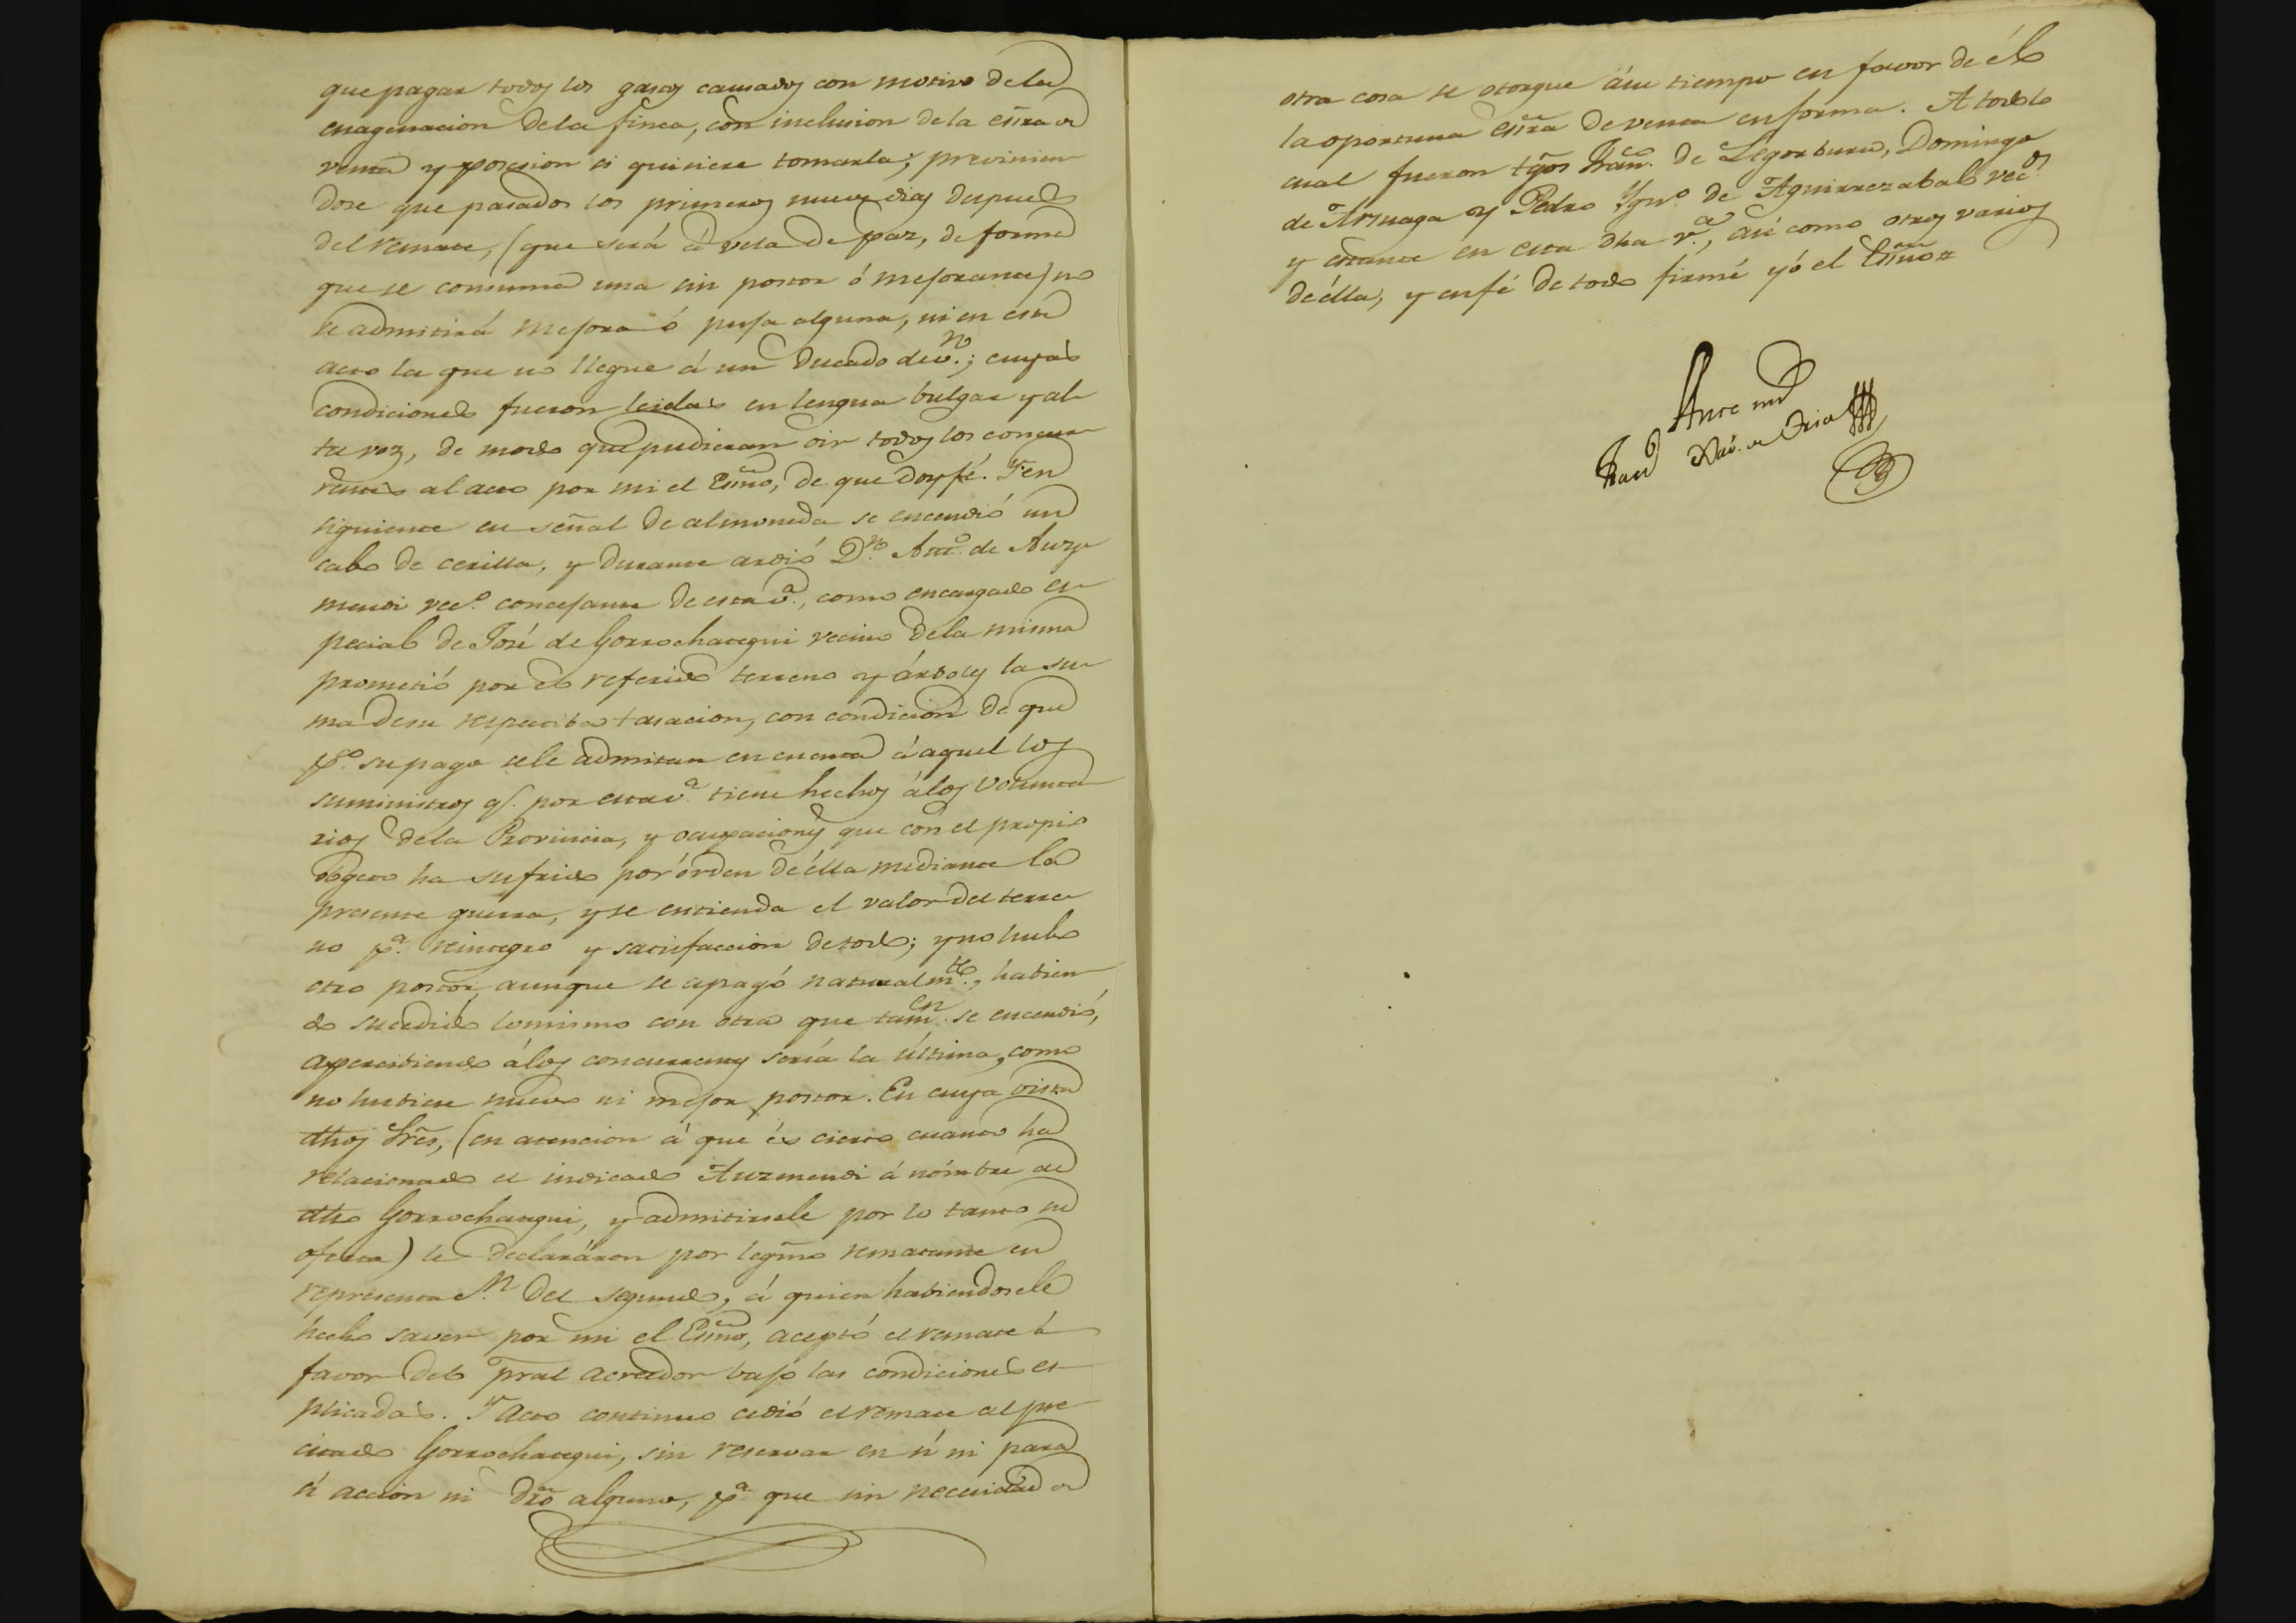 que pagar todos los gastos causados con motivo dela
enagenacion dela finca, con inclusion dela esr̃a de
venta y posesion si quisiere tomarla; previnien
dose que pasados los primeros nueve dias despues
del remate, (que será á vela de paz, de forma
que se consuma una sin postor ó mejorante) no
se admitirá mejora ó puja alguna, ni en este
acto la que no llegue á un Ducado de v.ⁿ; cuyas
condiciones fueron leidas en lengua bulgar y al
ta voz, de modo que pudieran oir todos los concur
rentes al acto por mi el Esño, de que doy fé. Y en
siguiente en señal de almoneda se encendió un
cabo de cerilla, y durante ardió D.ⁿ Ant.º de Auz
mendi vec.º concejante de esta v.ª, como encargado es
pecial de José de Gorrochategui vecino dela misma
prometió por el referido terreno y árboles la su
ma de su respectiba tasacion, con condicion de que
p.ª su pago sele admitan en cuenta á aquel los
suministros q.ᵉ por esta v.ª tiene hechos álos volunta
rios dela Provincia, y ocupaciones que con el propio
obgeto ha sufrido por órden de élla mediante la
presente guerra, y se entienda el valor del terre
no p.ª reintegro y satisfaccion de todo; y no hubo
otro postor, aunque se apagó naturalm.ᵗᵉ, habien
do sucedido lo mismo con otra que tam.ᵉⁿ se encendió,
apercibiendo álos concurrentes sería la última, como
no hubiese nuevo ni mejor postor. En cuya vista
dhos Sr̃es, (en atencion á que és cierto cuanto ha
relacionado el indicado Auzmendi á nómbre de
dho Gorrochategui, y admitirsele por lo tanto su
oferta) le declaráron por legm̃o rematante en
representa.ⁿ del segundo; á quien habiendosele
hecho saver por mi el Esño, aceptó el remate á
favor del pral acreedor bajo las condiciones es
plicadas. Y Acto continuo cedió el remate al pre
citado Gorrochategui, sin reservar en sí ni para
sí accion ni dr̃o alguno, p.ª que sin necesidad de
otra cosa se otorgue ásu tiempo en favor de él
la oportuna esr̃a de venta en forma. A todo lo
cual fueron tg̃os Fran.ᶜᵒ de Legorburu, Domingo
de Arsuaga y Pedro Ygn.º de Aguirrezabal vec.ᵒˢ
y estante en esta dha v.ª, así como otros varios
de élla, y en fé de todo firmé yó el Esño=
Ante mi
Fran Xav. de Oria